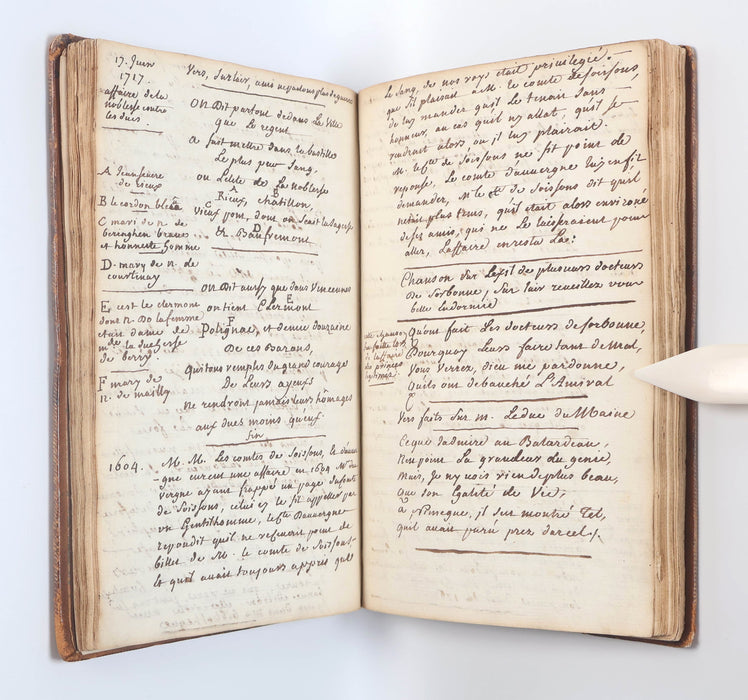 17. Juin
1717.
affaire de la
noblesse contre
les ducs
Vers, Sur lair, amis ne parlons plus de guerre
ON Dit partout dedans La Ville
Que Le regent
A fait mettre dans la bastille
Le plus pur Sang,
ou Lelite de La noblesse
A B
Rieux, chatillon,
C
Vieux pont, dont on Sait la Sagesse
D
et. Baufremont
A
de rieux
B le cordon bleu
C mari de n. de
beringhen brave
et honneste homme
D. mary de n. de
courtenay
on Dit aussy que dans Vincennes
E
on tient Clermont
F
Polignac, et demie douzaine
De ces Barons,
Qui tous remplis du grand courage
De Leurs ayeux
ne rendront jamais leurs homages
aux ducs moins queux.
fin
E cest le clermont
dont n. Do la femme
est dame de
me. la duchesse
de berry.
F mary de
n. de mailly
1604. M. M. Les comtes de Soissons, et dauver
-gne eurent une affaire en 1604 Mr. dau
vergne ayant frappé un page du comte
de Soissons, celui cy le fit appeller par
un Gentilhomme, le Cte Dauvergne
repondit quil ne refusoit point de
billet de M. le comte de Soissons
et quil avait toujours appris que
le Sang, de nos roys était privilegié.
que Sil plaisait a M. le comte de Soissons,
de luy mander quil Le tenait Sans
honneur, au cas quil ny allat, quil Se
rendrait alors ou il luy plairait.
M. le Cte de Soissons ne fit point de
reponse, Le comte dauvergne luy en fit
demander, M le Cte de Soissons dit quil
netait plus tems, quil était alors environé
de ses amis, qui ne Le laisseraient point
aller, Laffaire en resta La:
Chanson Sur Lexil de plusieurs docteurs
de Sorbonne, Sur lair reveillez vous
belle Endormie
Quont fait Les docteurs de Sorbonne
Pourquoy Leurs faire tant de Mal,
Vous Verrez, dieu me pardonne,
Quils ont debauché L'amiral
de laffaire
des princes
legitimez.
Vers faits Sur m. Le duc du Maine
Ce que Jadmire au Batardeau,
Nen point La grandeur de genie,
Mais, Jn'y vois rien de plus beau,
Que Son Egalité de Vie,
a Nimegue, il Sur montré Tel,
quil avait paru prez darcel.